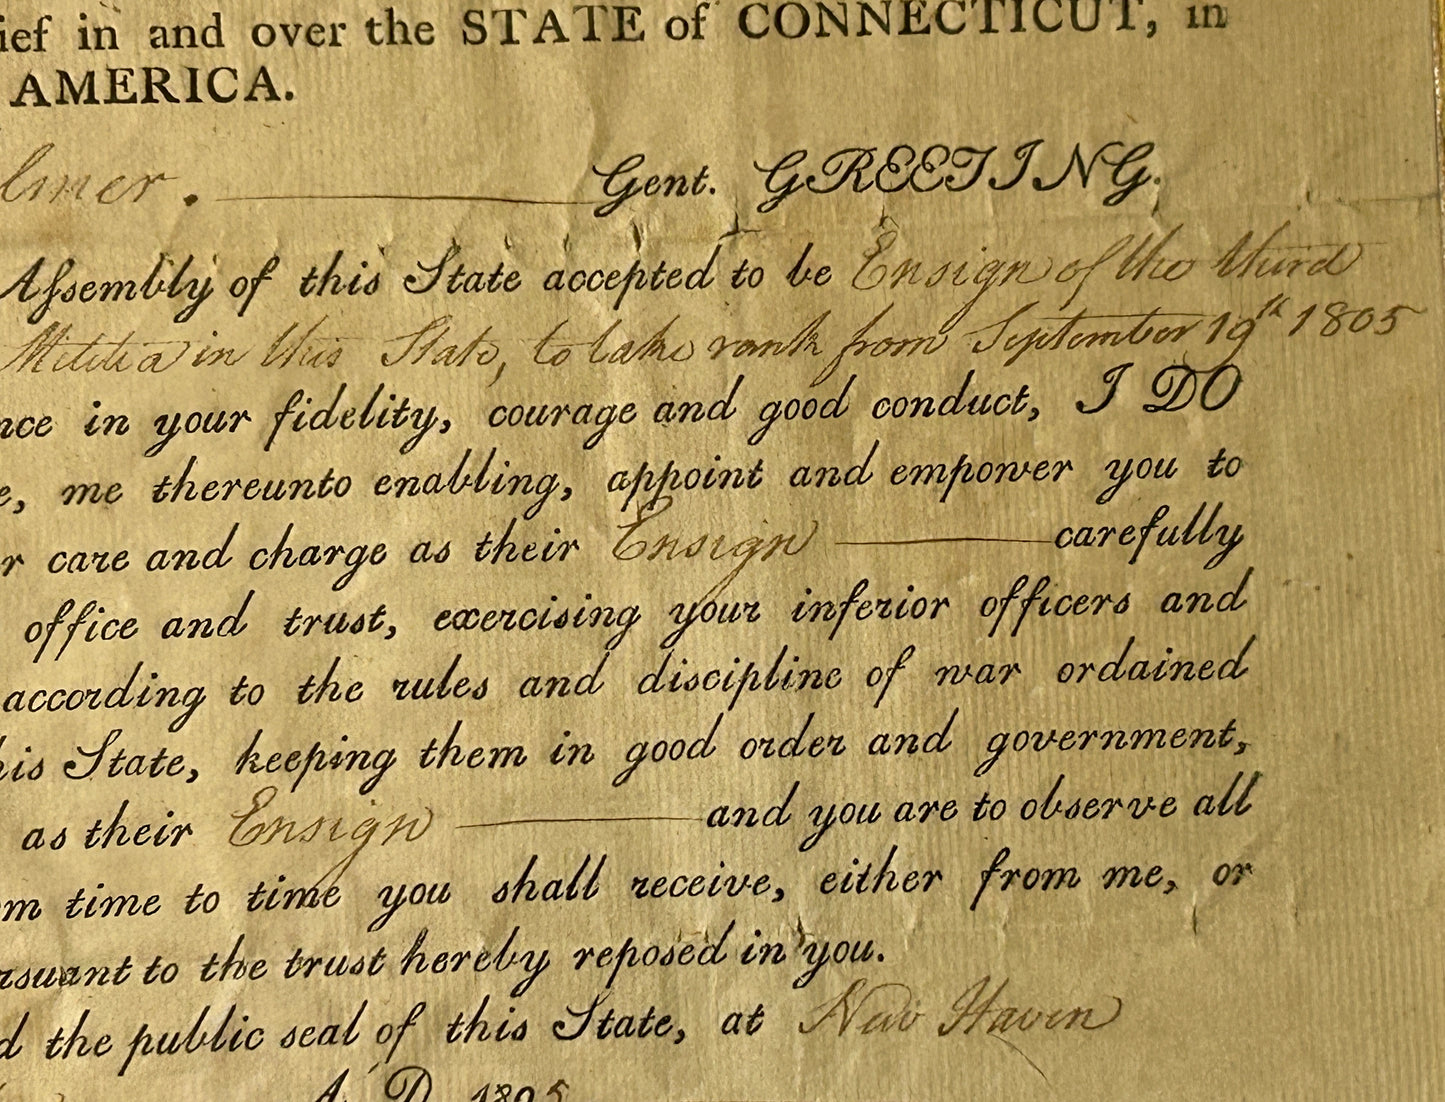 ief in and over the STATE of CONNECTICUT, in
AMERICA.
lmer. Gent. GREETING.
Aſsembly of this State accepted to be Ensign of the third
Militia in this State, to take rank from September 19th 1805
nce in your fidelity, courage and good conduct, I DO
e, me thereunto enabling, appoint and empower you to
r care and charge as their Ensign carefully
office and trust, exercising your inferior officers and
according to the rules and discipline of war ordained
his State, keeping them in good order and government,
as their Ensign and you are to observe all
om time to time you shall receive, either from me, or
rsuant to the trust hereby reposed in you.
d the public seal of this State, at New Haven
A. D. 1805